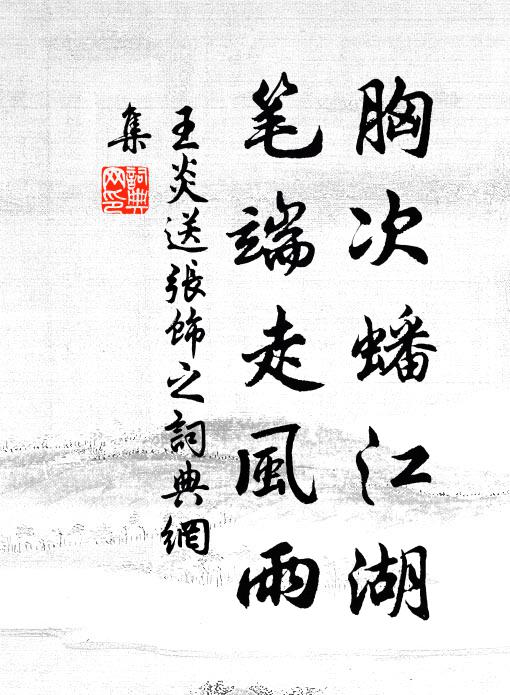 胸次蟠江湖
笔端走風雨
王炎送張飾之詞典網
集
詞典网印